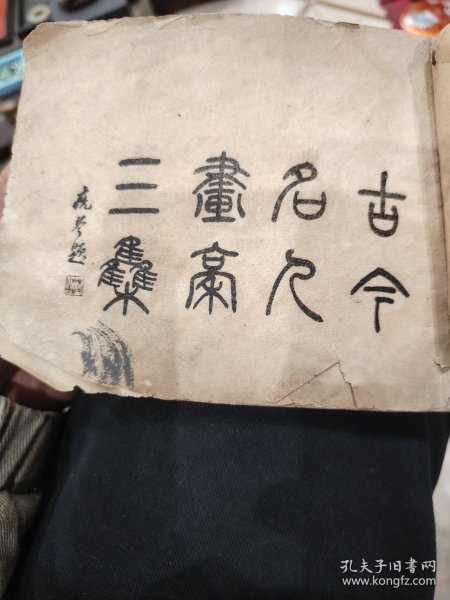 古今
名人
畫稾
三集
題
孔夫子旧书网
www.kongfz.com